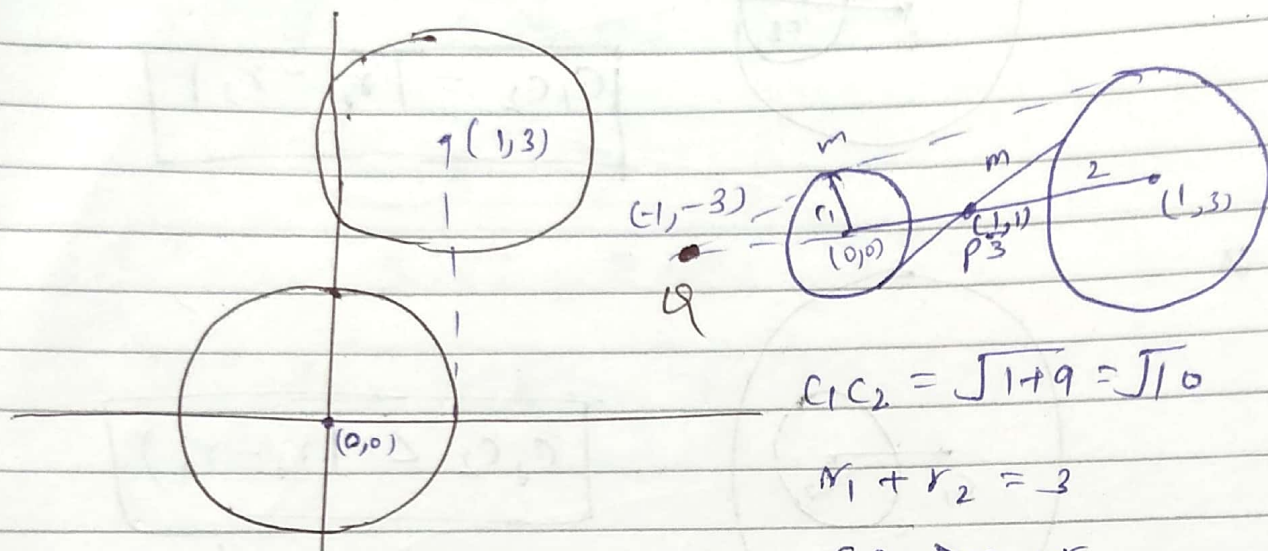 (1,3)
(0,0)
m
m
2
(-1,-3)
r₁
(0,0)
(1/3,1)
P
(1,3)
Q
C₁C₂ = √1+9 = √10
r₁ + r₂ = 3